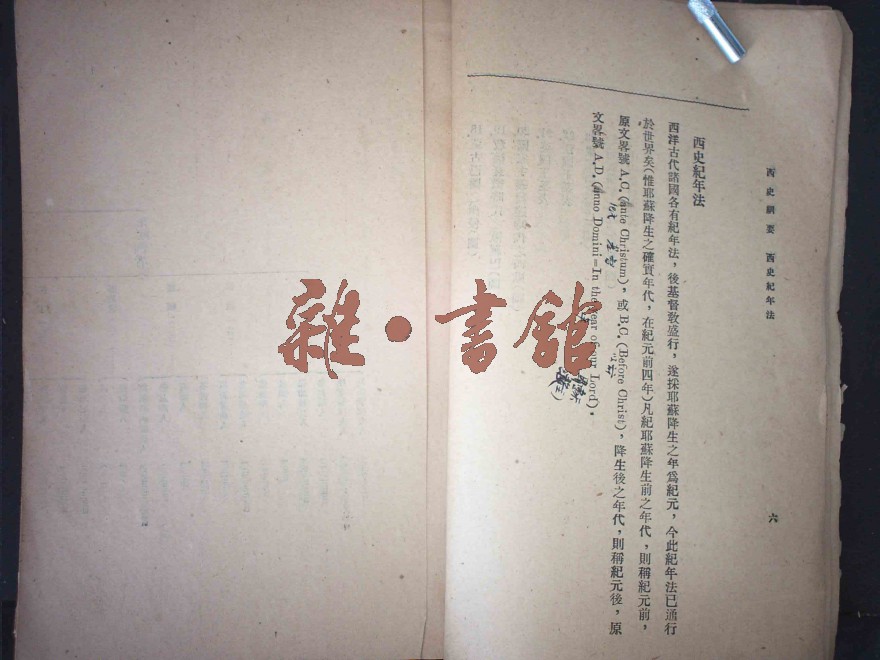 西史綱要 西史紀年法
六
西史紀年法
西洋古代諸國各有紀年法，後基督教盛行，遂採耶蘇降生之年爲紀元，今此紀年法已通行
於世界矣(惟耶蘇降生之確實年代，在紀元前四年)凡紀耶蘇降生前之年代，則稱紀元前，
原文畧號 A.C. (ante Christum)，或 B.C. (Before Christ)，降生後之年代，則稱紀元後，原
文畧號 A.D. (anno Domini=In the year of our Lord)。
雜·書館